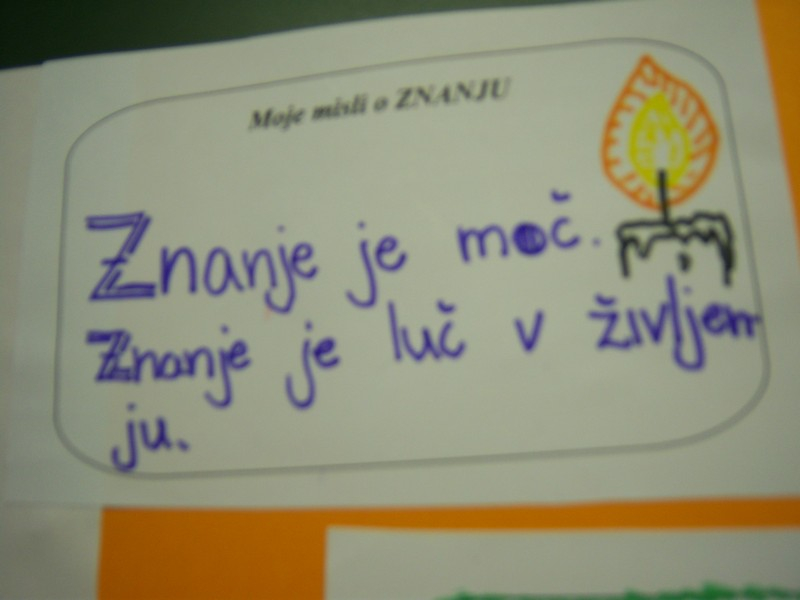 Moje misli o ZNANJU
Znanje je moč.
Znanje je luč v življen
ju.